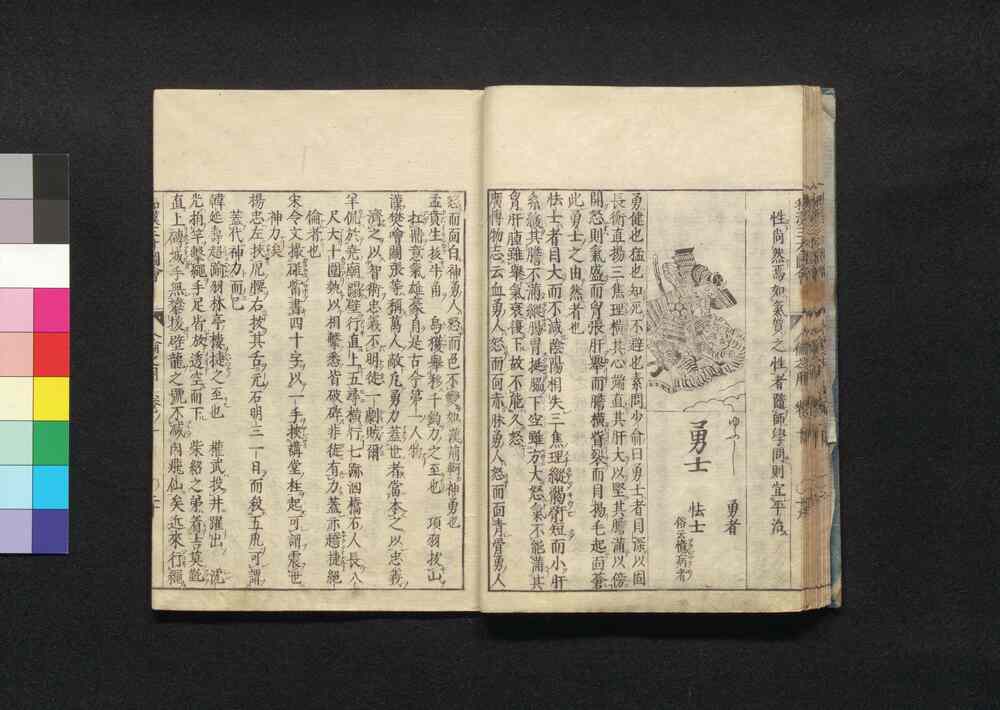 性尚然焉如氣質之性者隨師學問則宜平治
ゆうし
勇士
勇者
怯士
俗云憶病者
勇健也猛也知死不避也素問少俞曰勇士者目深以固
長衡直揚三焦理橫其心端直其肝大以堅其膽滿以傍
開怒則氣盛而胷張肝舉而膽橫眥裂而目揚毛起而面蒼
此勇士之由然者也
怯士者目大而不減陰陽相失三焦理縱𩩲骬短而小肝
系緩其膽不滿縱腸胃挺脇下空雖方大怒氣不能滿其
胷肝肺雖舉氣衰復下故不能久怒
廣博物志云血勇人怒而面赤脉勇人怒而面青骨勇人
怒而面白神勇人怒而色不變如漢荊軻神勇也
孟賁生拔牛角 烏獲舉移千鈞力之至也 項羽拔山
扛鼎意氣雄豪自是古今第一人物
漢樊噲關張等稱萬人敵凡勇力蓋世者當本之以忠義
濟之以智術忠義不明徒一劇賊爾
羊侃於兗廟蹋壁行直上五尋橫行七跡泗橋石人長八
尺大十圍執以相擊悉皆破碎非徒有力蓋亦趫捷絕
倫者也
宋令文撮碓觜書四十字以一手挾講堂柱起可謂震世
神力矣
揚忠左挾虎腰右拔其舌元石明三一日而殺五虎可謂
蓋代神力而已
韓延壽超踰羽林亭樓捷之至也 權武投井躍出 沈
光拍竿繫繩手足皆放透空而下 柴紹之弟著吉莫靴
直上磚城手無攀援壁龍之號不減肉飛仙矣近來行